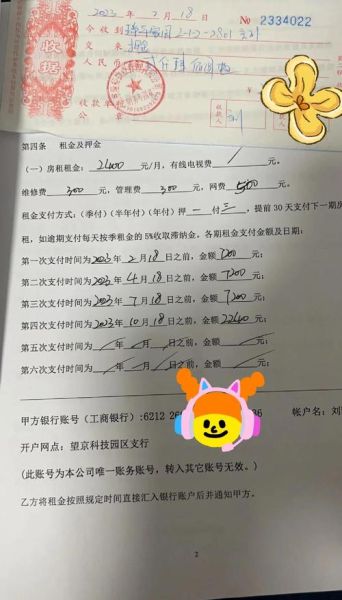 2023年2月18日 No 2334022
今收到
交来 押金
人民币
收款单位
收款人
收据
第四条 租金及押金
（一）房租租金：2400元/月，有线电视费 / 元。
维修费300元，管理费300元，网费500元。
租金支付方式：（季付）（半年付）（年付）押一付三，提前30天支付下一期房
租，如逾期支付每天按季租金的5%收取滞纳金。各期租金支付金额及日期：
第一次支付时间为2023年2月18日之前，金额7200元；
第二次支付时间为2023年4月18日之前，金额7200元；
第三次支付时间为2023年7月18日之前，金额7200元；
第四次支付时间为2023年10月18日之前，金额22400元；
第五次支付时间为/年/月/日之前，金额/元；
第六次支付时间为/年/月/日之前，金额/元；
甲方银行账号（工商银行）:6212 26 36 帐户名：刘
开户网点：望京科技园区支行
（此账号为本公司唯一账务账号，转入其它账号无效。）
乙方将租金按照规定时间直接汇入银行账户后并通知甲方。
2